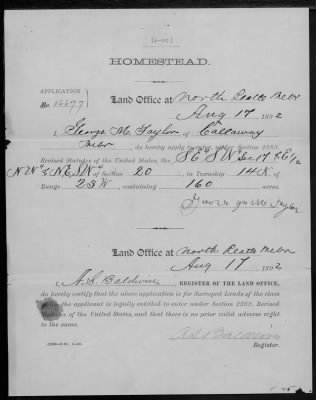 HOMESTEAD.
APPLICATION
No. 16677
Land Office at North Platte Nebr
Aug 17, 1892
I, George M. Taylor, of Callaway
Nebr, do hereby apply to enter, under Section 2289,
Revised Statutes of the United States, the SE4 SW4 Sec 17 & E 1/2
NW4 & NE SW4 of Section 20, in Township 14 N of
Range 23 W, containing 160 acres.
George M. Taylor
Land Office at North Platte Nebr
Aug 17, 1892
I, A. S. Baldwin, REGISTER OF THE LAND OFFICE,
do hereby certify that the above application is for Surveyed Lands of the class
the applicant is legally entitled to enter under Section 2289, Revised
Statutes of the United States, and that there is no prior valid adverse right
to the same.
A. S. Baldwin
Register.